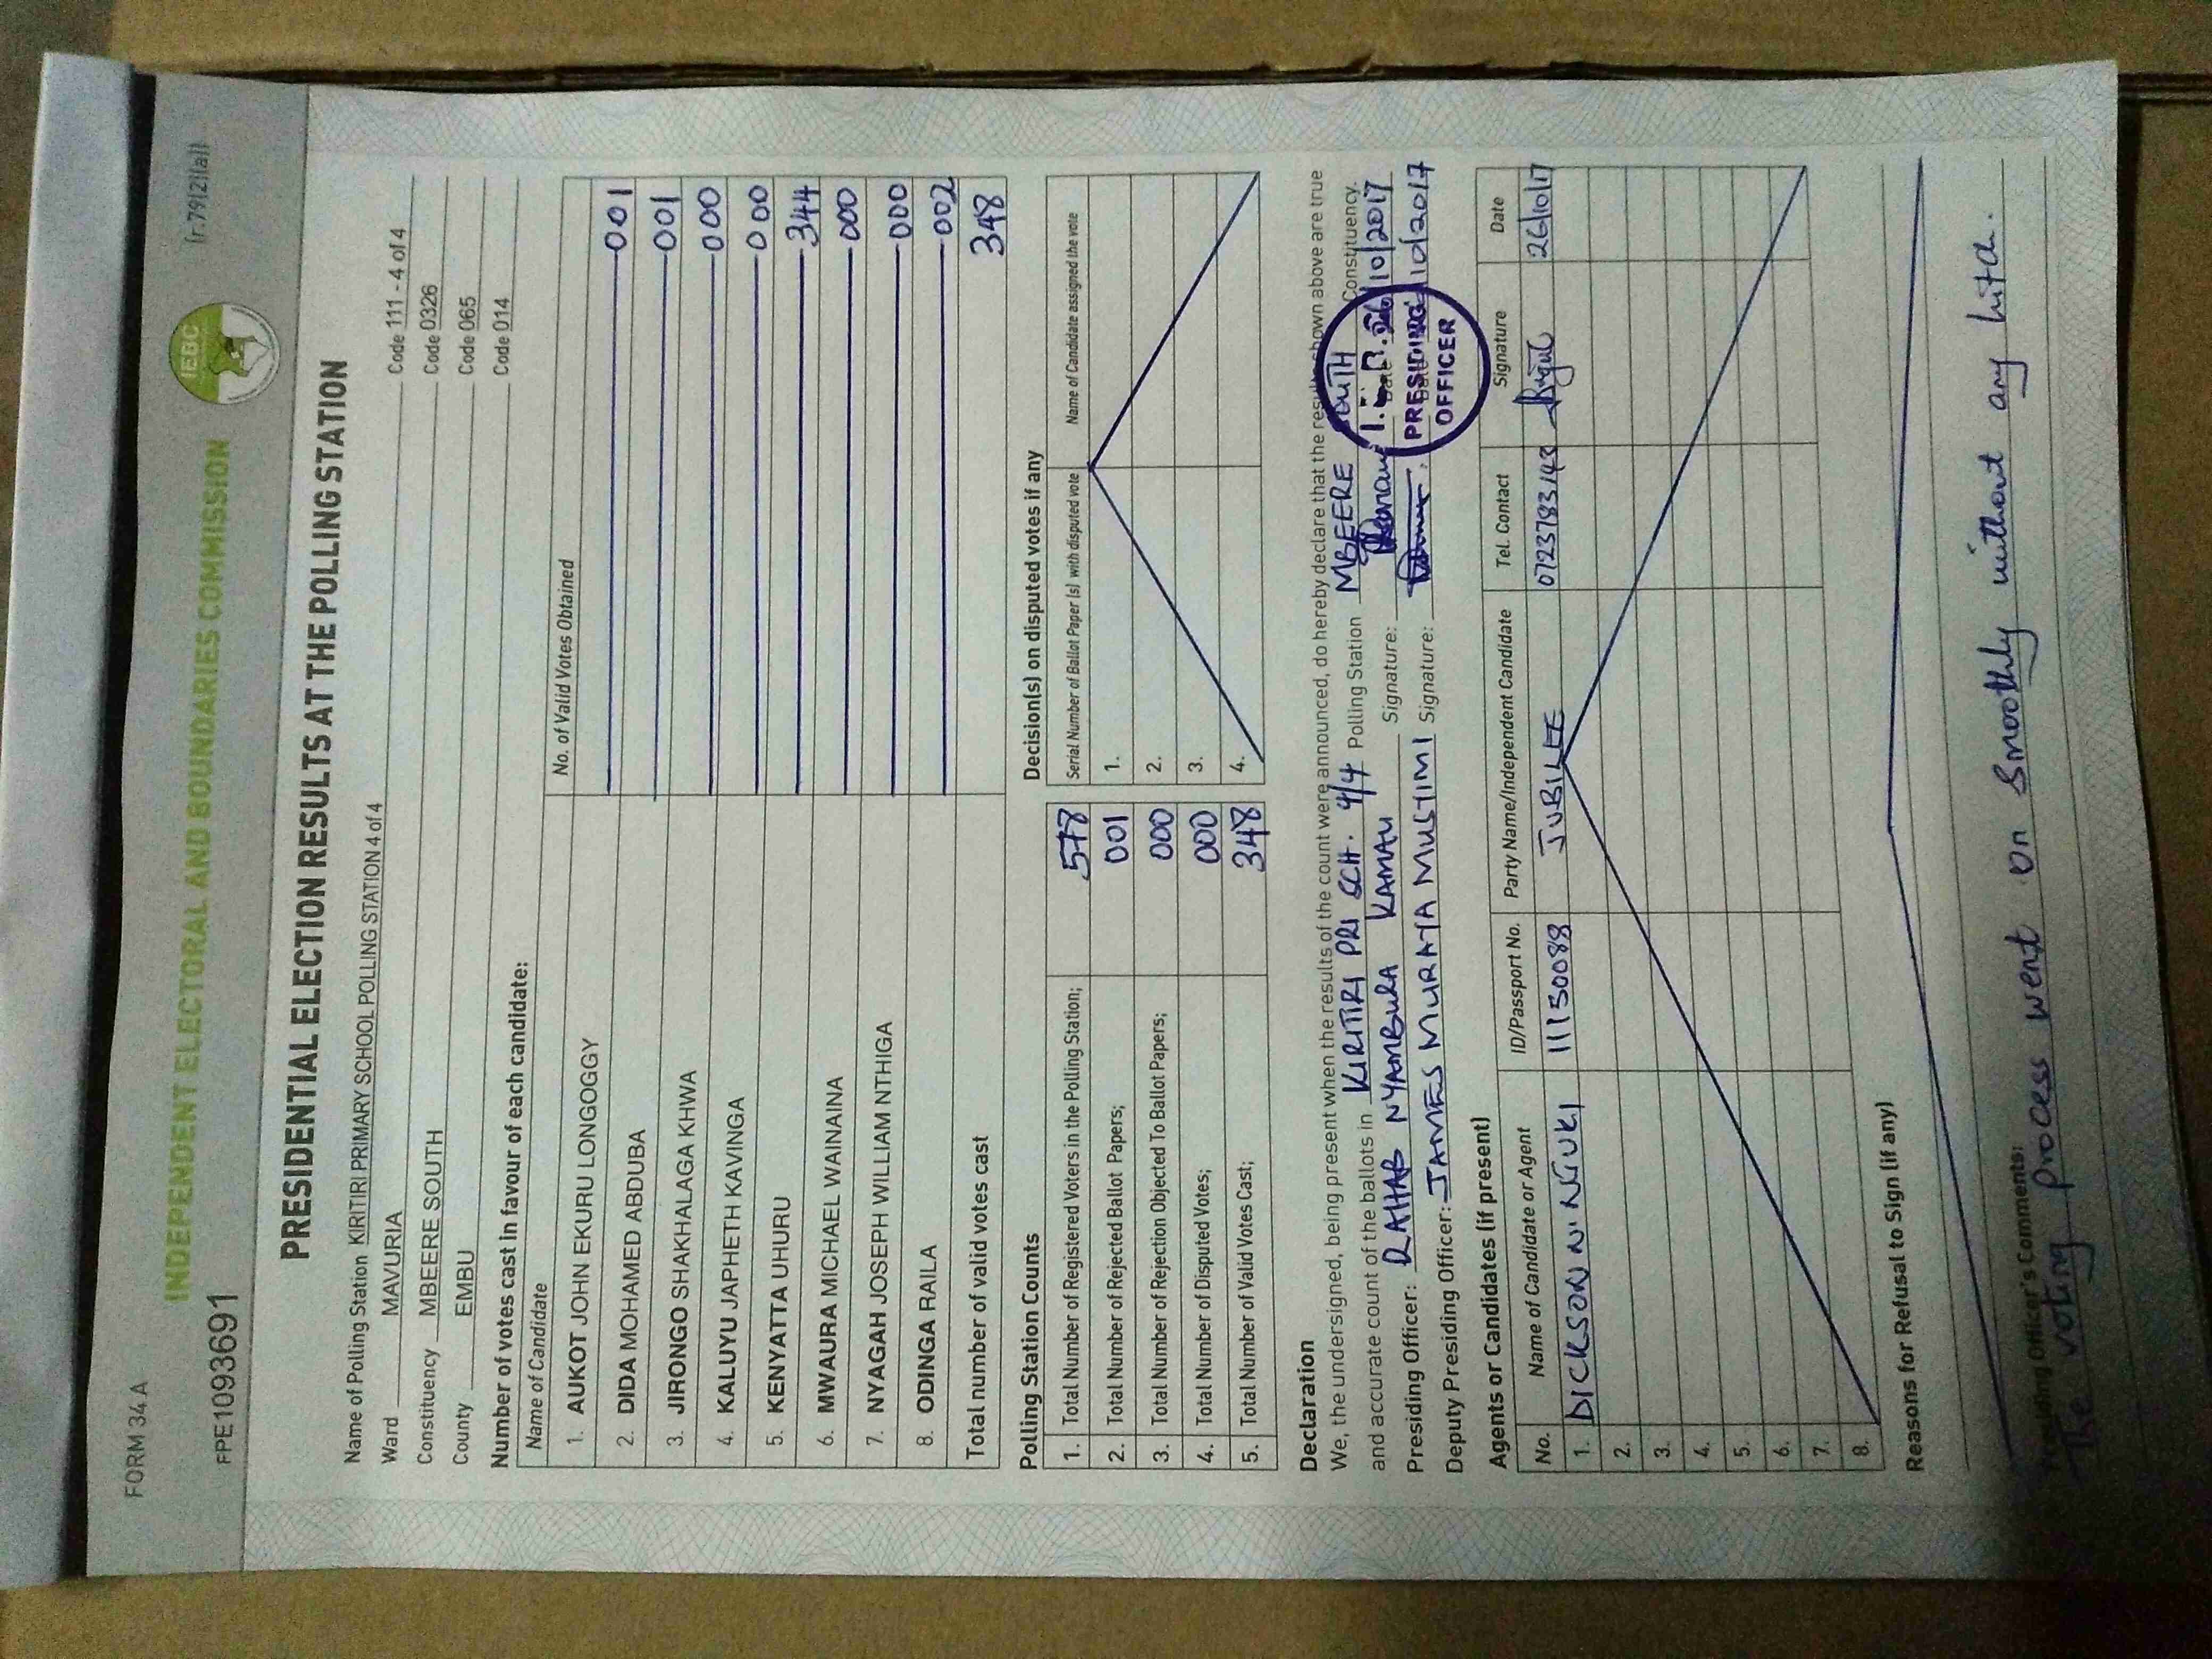 FORM 34A
[r.79(2)(a)]
INDEPENDENT ELECTORAL AND BOUNDARIES COMMISSION
IEBC
FPE1093691
PRESIDENTIAL ELECTION RESULTS AT THE POLLING STATION
Name of Polling Station KIRITIRI PRIMARY SCHOOL POLLING STATION 4 of 4 Code 111 - 4 of 4
Ward MAVURIA Code 0326
Constituency MBEERE SOUTH Code 065
County EMBU Code 014
Number of votes cast in favour of each candidate:
Name of Candidate No. of Valid Votes Obtained
1. AUKOT JOHN EKURU LONGOGGY 001
2. DIDA MOHAMED ABDUBA 001
3. JIRONGO SHAKHALAGA KHWA 000
4. KALUYU JAPHETH KAVINGA 000
5. KENYATTA UHURU 344
6. MWAURA MICHAEL WAINAINA 000
7. NYAGAH JOSEPH WILLIAM NTHIGA 000
8. ODINGA RAILA 002
Total number of valid votes cast 348
Polling Station Counts
1. Total Number of Registered Voters in the Polling Station; 578
2. Total Number of Rejected Ballot Papers; 001
3. Total Number of Rejection Objected To Ballot Papers; 000
4. Total Number of Disputed Votes; 000
5. Total Number of Valid Votes Cast; 348
Decision(s) on disputed votes if any
Serial Number of Ballot Paper (s) with disputed vote Name of Candidate assigned the vote
1.
2.
3.
4.
Declaration
We, the undersigned, being present when the results of the count were announced, do hereby declare that the results shown above are true
and accurate count of the ballots in KIRITIRI PRI SCH. 4/4 Polling Station MBEERE SOUTH Constituency.
Presiding Officer: RAHAB NYAMBURA KAMAU Signature: 26/10/2017
Deputy Presiding Officer: JAMES MURATA MUSTIMI Signature: /10/2017
PRESIDING OFFICER
Agents or Candidates (if present)
No. Name of Candidate or Agent ID/Passport No. Party Name/Independent Candidate Tel. Contact Signature Date
1. DICKSON N. NGUKI 11130088 JUBILEE 0723783143 26/10/17
2.
3.
4.
5.
6.
7.
8.
Reasons for Refusal to Sign (if any)
Presiding Officer's Comments:
The voting process went on smoothly without any hitch.